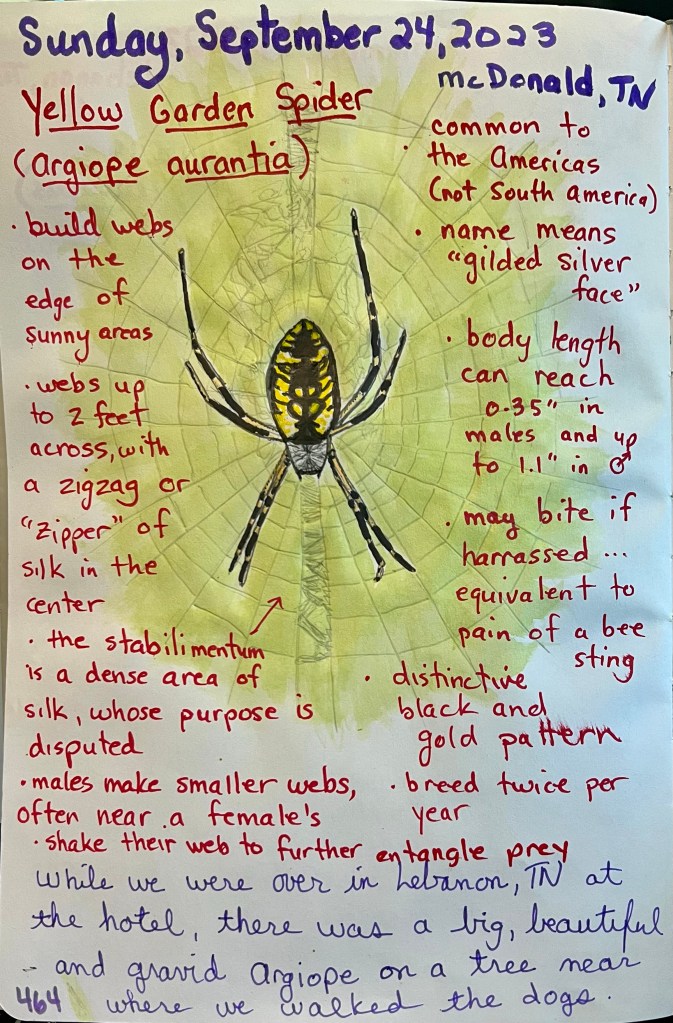 Sunday, September 24, 2023
McDonald, TN
Yellow Garden Spider
(Argiope aurantia)
• build webs
on the
edge of
sunny areas
• webs up
to 2 feet
across, with
a zigzag or
"zipper" of
silk in the
center
• the stabilimentum
is a dense area of
silk, whose purpose is
disputed
• males make smaller webs,
often near a female's
• shake their web to further entangle prey
• common to
the Americas
(not South America)
• name means
"gilded silver
face"
• body length
can reach
0.35" in
males and up
to 1.1" in ♂
• may bite if
harrassed ...
equivalent to
pain of a bee
sting
• distinctive
black and
gold pattern
• breed twice per
year
While we were over in Lebanon, TN at
the hotel, there was a big, beautiful
- and gravid Argiope on a tree near
where we walked the dogs.
464